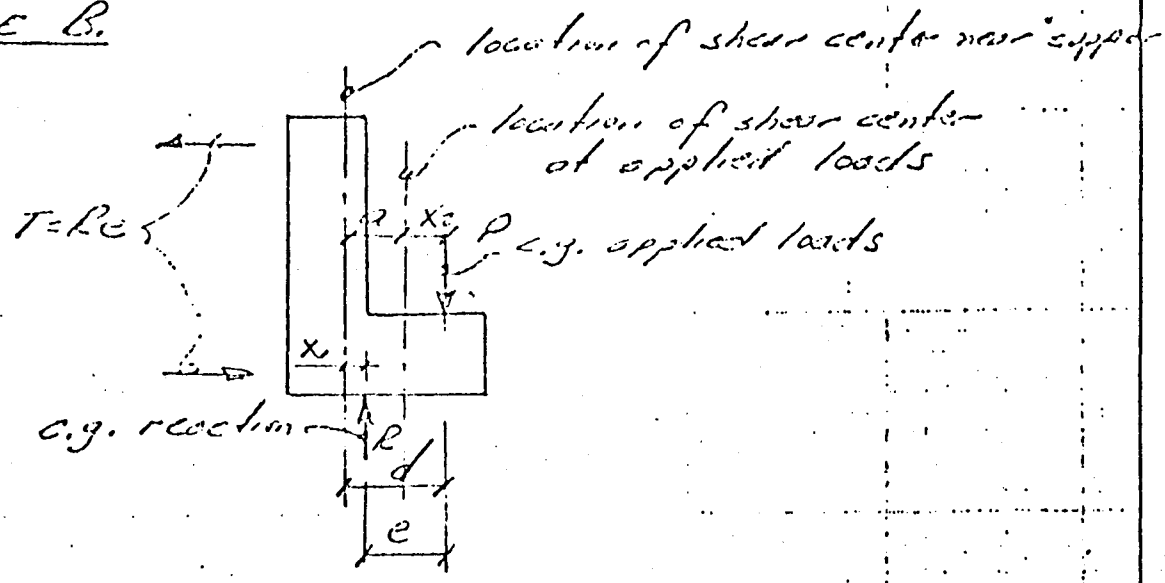 E B.
location of shear center near suppor
location of shear center
at applied loads
T=Re
a
X₂
P
c.g. applied loads
X₁
c.g. reaction
R
d
e